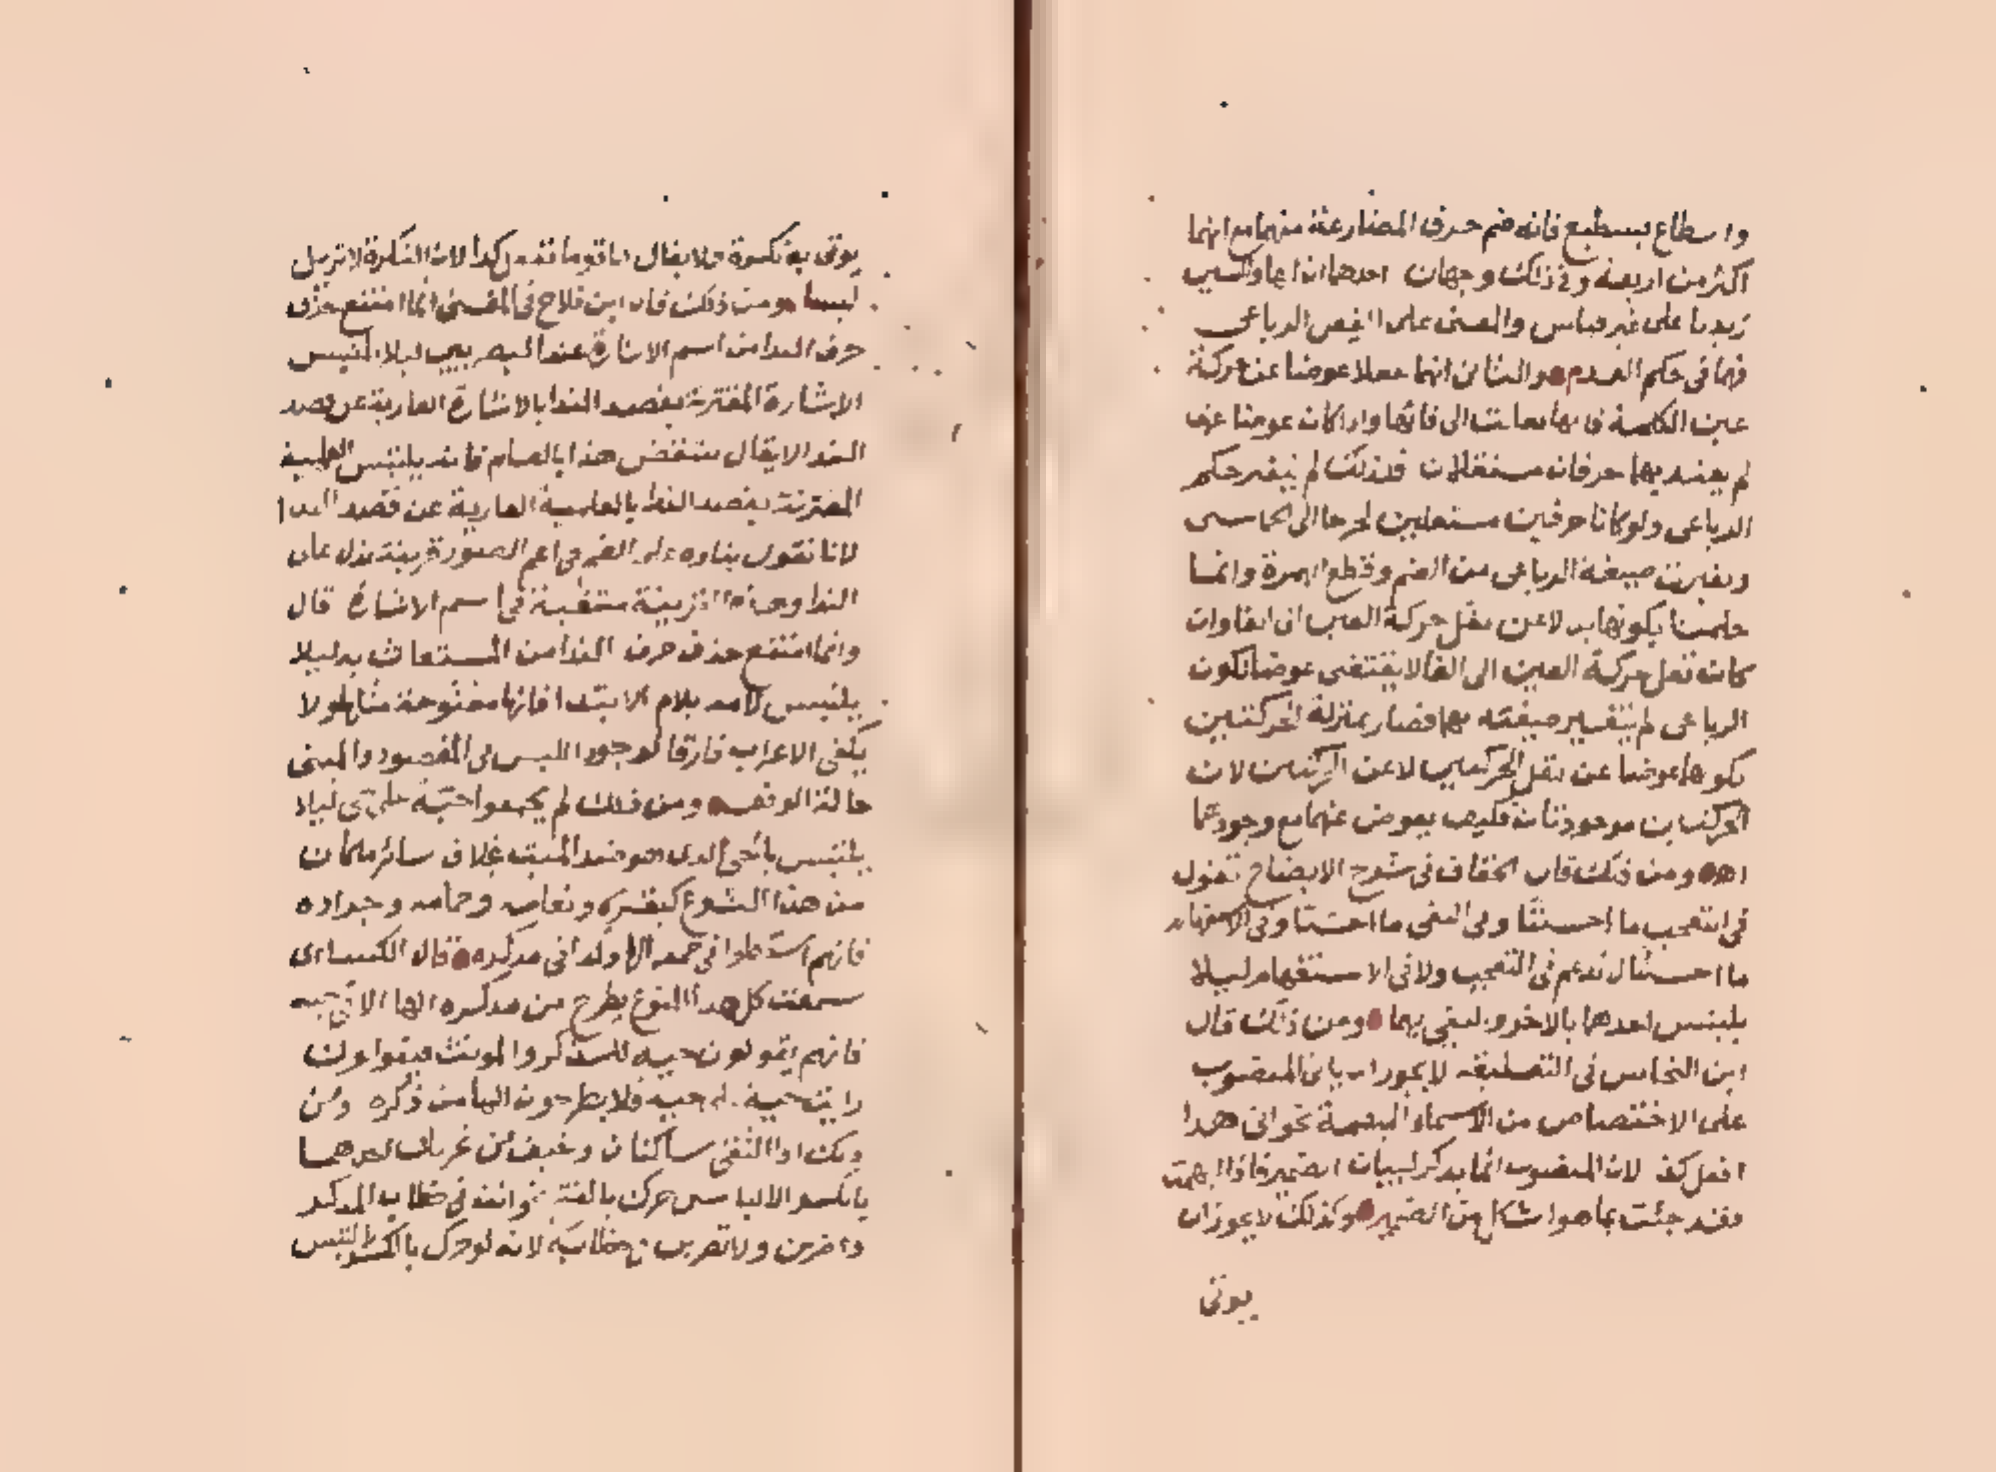 واسطاع يسطيع فانه ضم حرف المضارعة منهما مع انهما
اكثر من اربعة وفي ذلك وجهان احدهما ان الها والسين
زيدتا على غير قياس والمعنى على الفعل الرباعي
فهما في حكم العدم والثاني انهما جعلا عوضا عن حركة
عين الكلمة فانها نقلت الى فائها واذا كانت عوضا عنها
لم يعتد بها حرفان مستقلان فلذلك لم يتغير حكم
الرباعى ولو كانا حرفين مستقلين لخرجا الى الخماسى
وتغيرت صيغة الرباعى من الضم وقطع الهمزة وانما
حكمنا بكونها بدلا عن نقل حركة العين
كانت نقل حركة العين الى الفا لا يقتضى عوضا لكون
الرباعى لم يتغير صيغته بهما فصار بمنزلة الحركتين
كونها عوضا عن نقل الحركتين لا عن الحركتين لان
الحركتين موجودتان فكيف يعوض عنهما مع وجودهما
ومن ذلك قال الخفاف في شرح الايضاح تقول
في التعجب ما احسننا وفى النفى ما احسنا وفى الاستفهام
ما احسننا ل تدغم فى التعجب ولا فى الاستفهام ليلا
يلتبس احدهما بالاخر والنفى بهما ومن ذلك قال
ابن النحاس فى التعليقه لا يجوز اتيان المنصوب
على الاختصاص من الاسماء المبهمة نحو انى هذا
افعل كذا لان المنصوب انما يذكر لبيان الضمير فاذا ابهمت
فقد جئت بما هو اشكل من الضمير وكذلك لا يجوز ان
يوتى
يوتى به نكرة فلا يقال انا قوما نفعل كذا لان النكرة لا تزيل
لبسا ومن ذلك قال ابن فلاح فى المغنى انما امتنع حذف
حرف الندا من اسم الاشارة عند البصريين ليلا تلتبس
الاشارة المقترنة بقصد الندا بالاشارة العارية عن قصد
الندا لا يقال ينتقض هذا بالعلم فانه يلتبس العلمية
المقترنة بقصد الندا بالعلمية العارية عن قصد الندا
لانا نقول بناوه على الضم فى اعم الصور قرينة تدل على
الندا وهذه القرينة منتفية فى اسم الاشارة قال
وانما امتنع حذف حرف الندا من المستغاث به ليلا
يلتبس لامه بلام الابتدا فانها مفتوحة مثلها ولا
يكفى الاعراب فارقا لوجود اللبس فى المقصور والمبنى
حالة الوقف ومن ذلك لم يجمعوا حية على حى ليلا
يلتبس بالحى الذى هو ضد الميت بخلاف سائر ما كان
من هذا النوع كبقره ونعامه وحمامه وجراده
فانهم اسقطوا في جمعه الها وكذا فى مذكره قال الكسائى
سمعت كل هذا النوع يطرح من مذكره الها الا حيه
فانهم يقولون حيه للمذكر والمونث فيقولون
رايت حية على حيه فلا يطرحون الها من ذكره ومن
ذلك اذا التقى ساكنان وخيف من تحريك احدهما
بالكسر الالباس حرك بالفتح نحو انت في خطاب المذكر
واضربن ولا تضربن فى خطابه لانه لو حرك بالكسر التبس